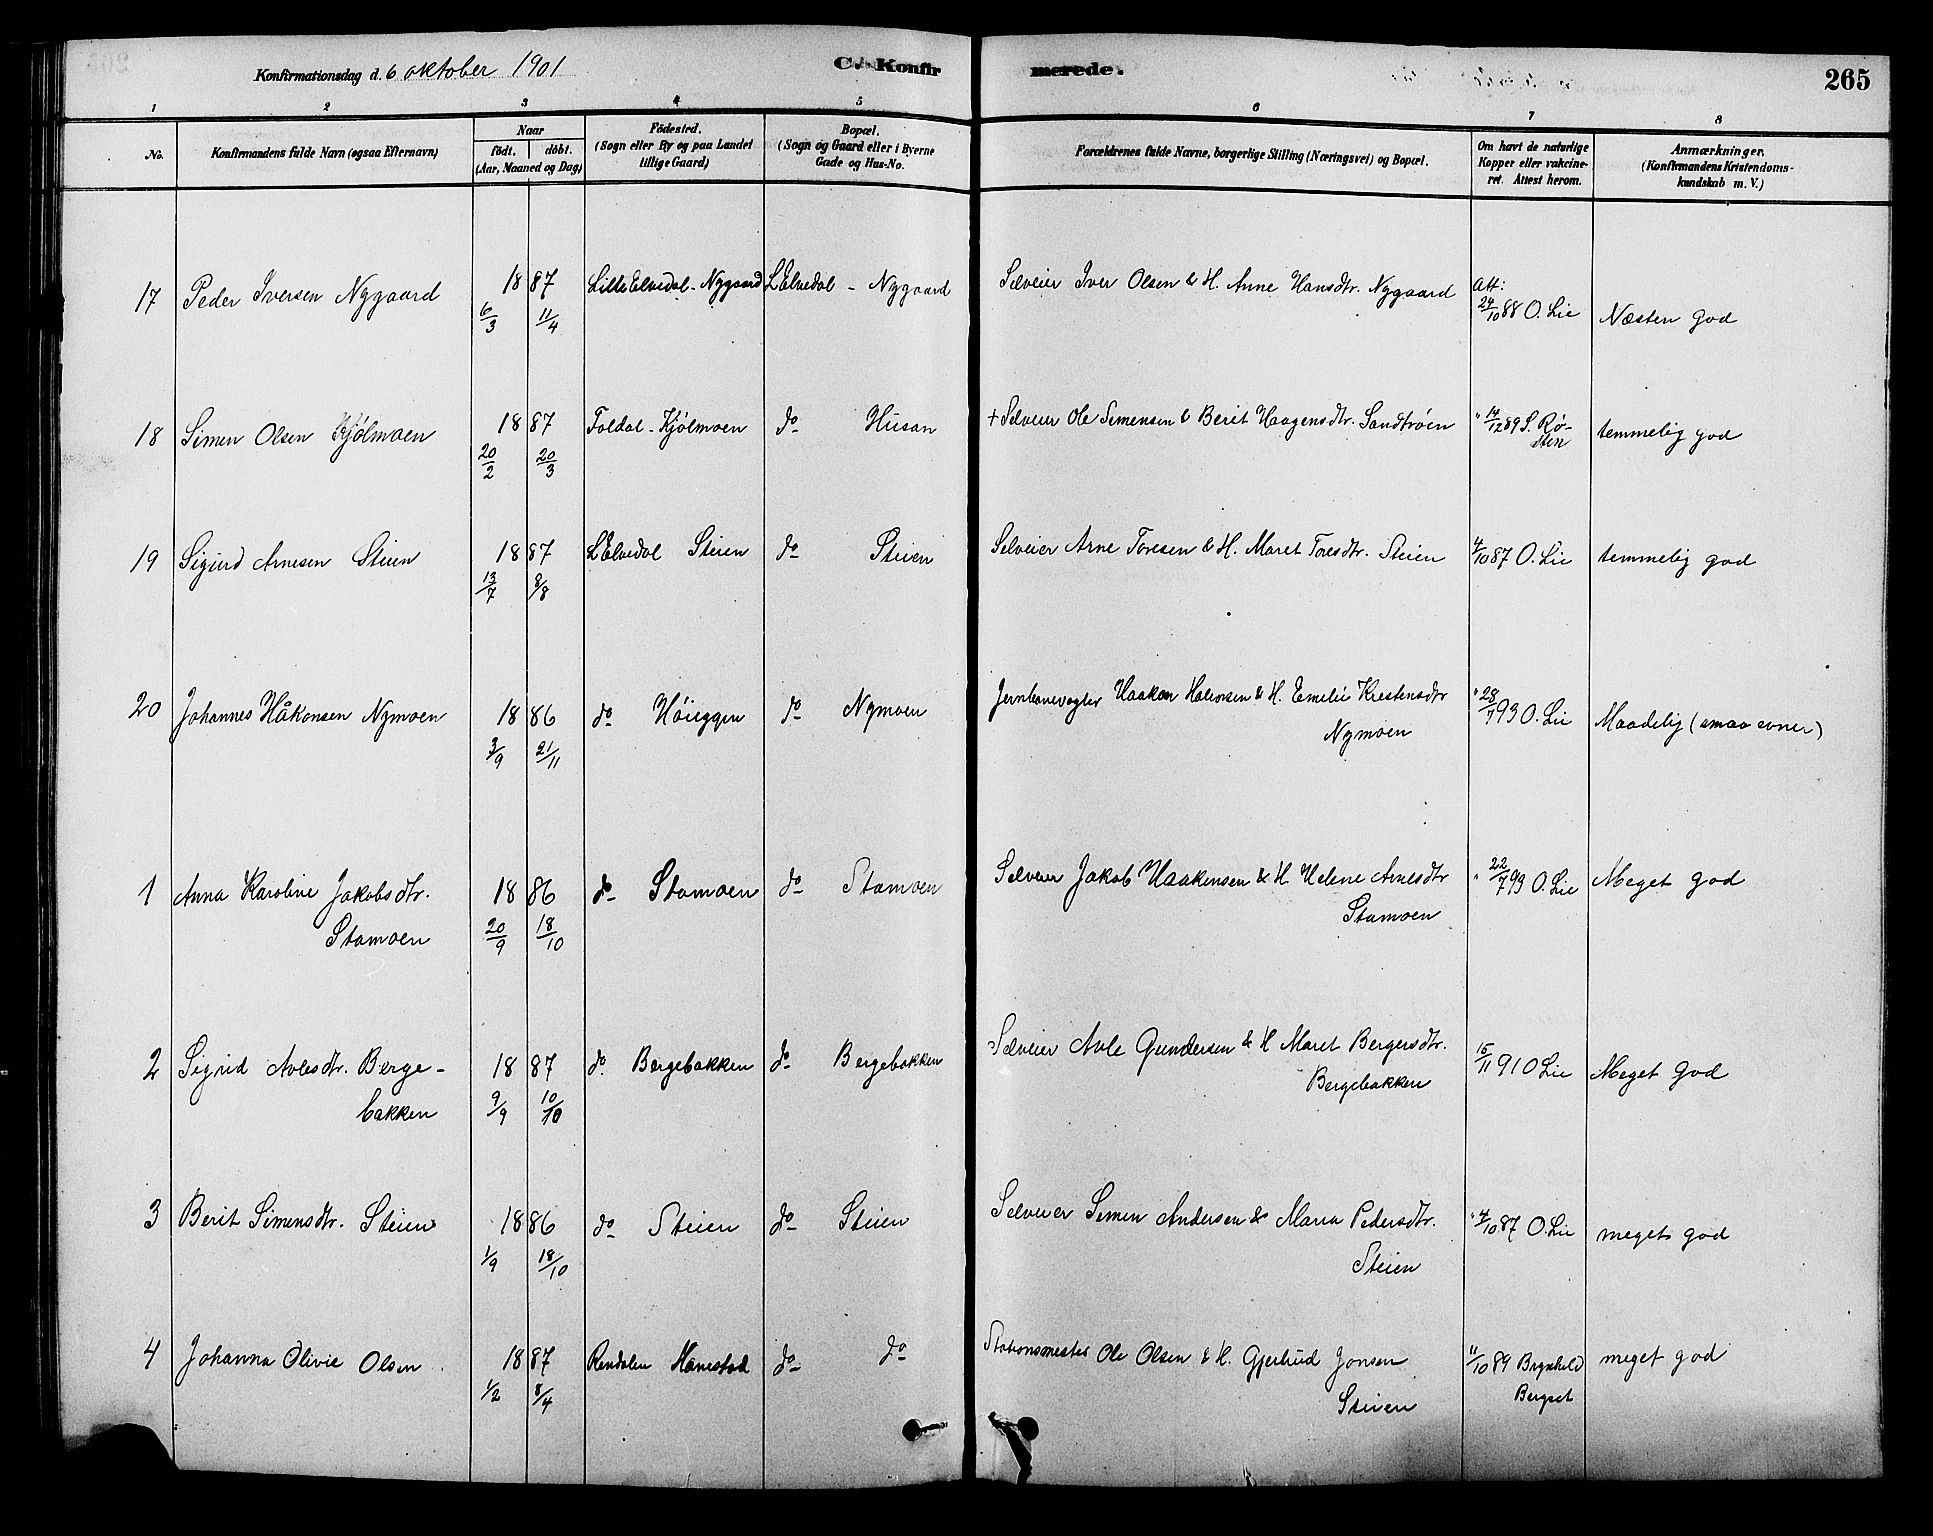 Konfirmationsdag d. 6 oktober 1901 C. Konfirmerede. 265
1 2 3 4 5 6 7 8
No. Konfirmandens fulde Navn (ogsaa Efternavn) Naar födt. döbt. (Aar, Maaned og Dag) Födested. (Sogn eller By og paa Landet tillige Gaard) Bopæl. (Sogn og Gaard eller i Byerne Gade og Hus-No. Forældrenes fulde Navne, borgerlige Stilling (Næringsvei) og Bopæl. Om havt de naturlige Kopper eller vakcineret. Attest herom. Anmærkninger. (Konfirmandens Kristendomskundskab m. V.)
17 Peder Iversen Nygaard 1887 6/3 11/4 Lille Elvedal - Nygaard L Elvedal - Nygaard Selveier Iver Olsen & H. Anne Hansdtr. Nygaard Att: 24/10 88 O. Lie Næsten god
18 Simen Olsen Kjølmoen 1887 20/2 20/3 Foldal - Kjølmoen do Husan + Selveier Ole Simensen & Berit Haagensdtr. Sandtrøen " 14/12 89 S. Røsten temmelig god
19 Sigurd Arnesen Steien 1887 13/7 8/8 L Elvedal Steien do Steien Selveier Arne Toresen & H. Maret Toresdtr. Steien 4/10 87 O. Lie temmelig god
20 Johannes Håkonsen Nymoen 1886 3/9 21/11 do Höieggen do Nymoen Jernbanevogter Haakon Halvorsen & H. Emelie Krestensdtr
Nymoen " 28/7 93 O. Lie Maadelig (smaa evner)
1 Anna Karoline Jakobsdtr.
Stamoen 1886 20/9 18/10 do Stamoen do Stamoen Selveier Jakob Haakensen & H Helene Arnesdtr
Stamoen " 22/7 93 O. Lie Meget god
2 Sigrid Avlesdtr. Berge-
bakken 1887 9/9 10/10 do Bergebakken do Bergebakken Selveier Avle Gundersen & H Maret Bergersdtr.
Bergebakken 15/11 91 O Lie Meget god
3 Berit Simensdtr. Steien 1886 1/9 18/10 do Steien do Steien Selveier Simen Andersen & Maria Pedersdtr.
Steien " 4/10 87 O. Lie meget god
4 Johanna Olivie Olsen 1887 1/2 8/4 Rendalen Hanestad do do Stationsmester Ole Olsen & H. Gjertrud Jonsen
Steien 11/10 89 Brynhild
Bergset meget god